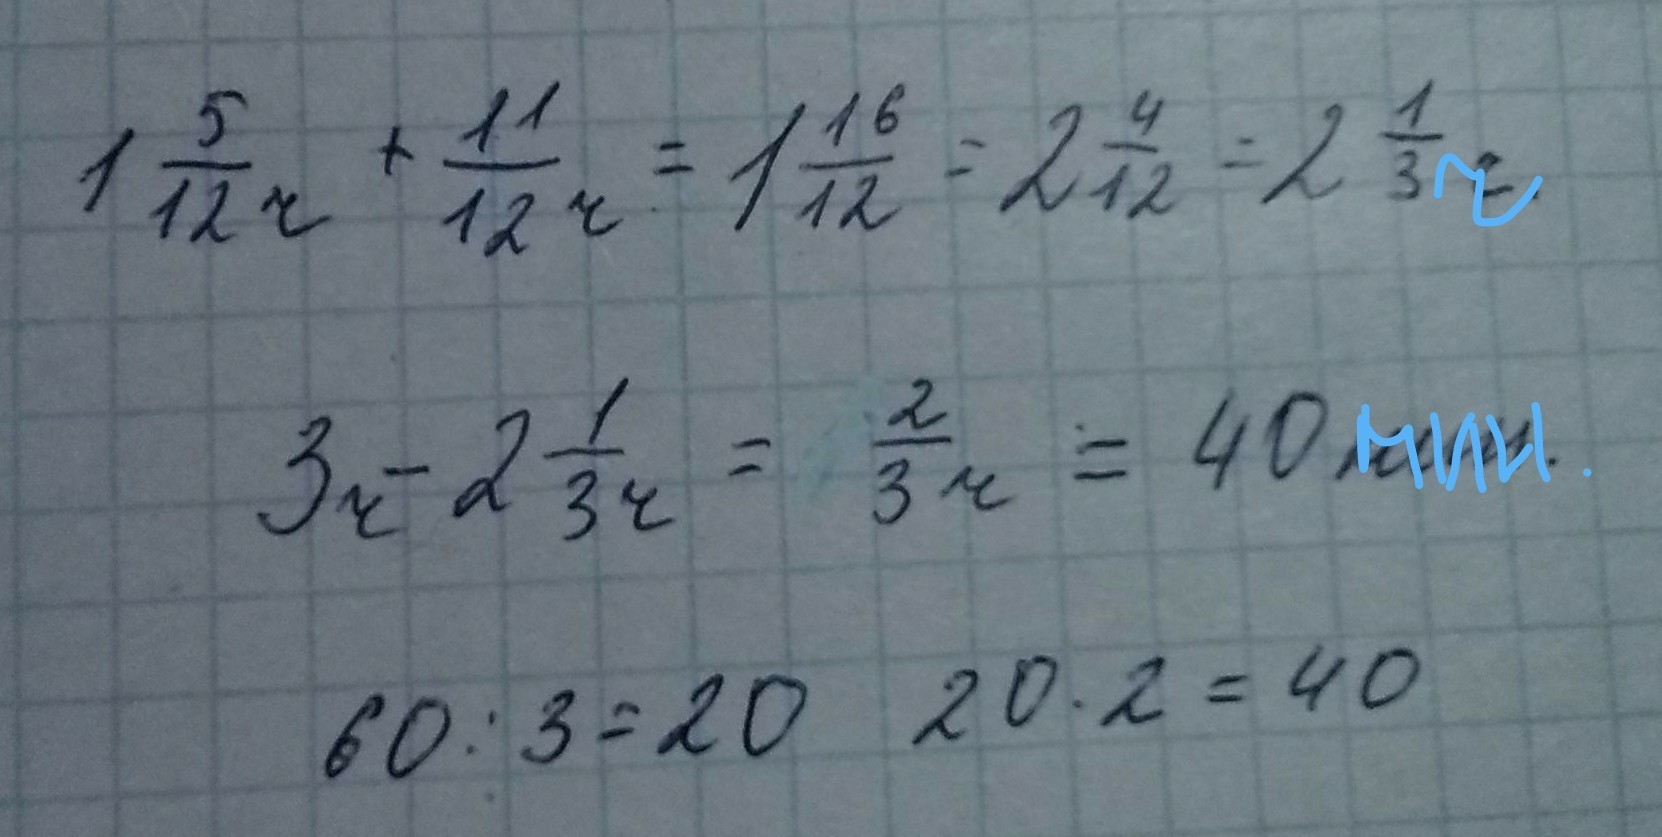 1 5/12 ч + 11/12 ч = 1 16/12 = 2 4/12 = 2 1/3 ч
3ч - 2 1/3 ч = 2/3 ч = 40 мин.
60 : 3 = 20 20 · 2 = 40